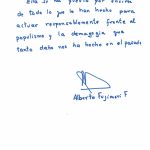 Ella se ha puesto por encima
de todo lo que le han hecho para
actuar responsablemente frente al
populismo y la demagogia que
tanto daño nos ha hecho en el pasado
Alberto Fujimori F